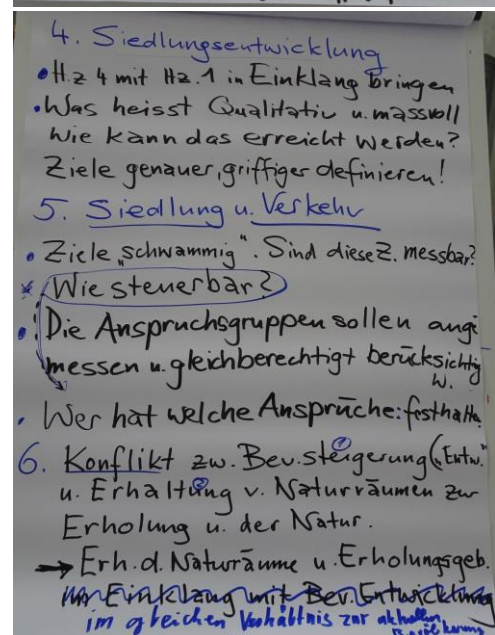 4. Siedlungsentwicklung
• H.z 4 mit Hz.1 in Einklang bringen
• Was heisst Qualitativ u. massvoll
Wie kann das erreicht werden?
Ziele genauer, griffiger definieren!
5. Siedlung u. Verkehr
• Ziele „schwammig". Sind diese Z. messbar?
* Wie steuerbar?
• Die Anspruchsgruppen sollen ange
messen u. gleichberechtigt berücksichtig
w.
• Wer hat welche Ansprüche: festhalte
6. Konflikt zw. Bev.steigerung ① („Entw."
u. Erhaltung ② v. Naturräumen zur
Erholung u. der Natur.
→ Erh. d. Naturräume u. Erholungsgeb.
im Einklang mit Bev. Entwicklung
im gleichen Verhältnis zur aktuellen